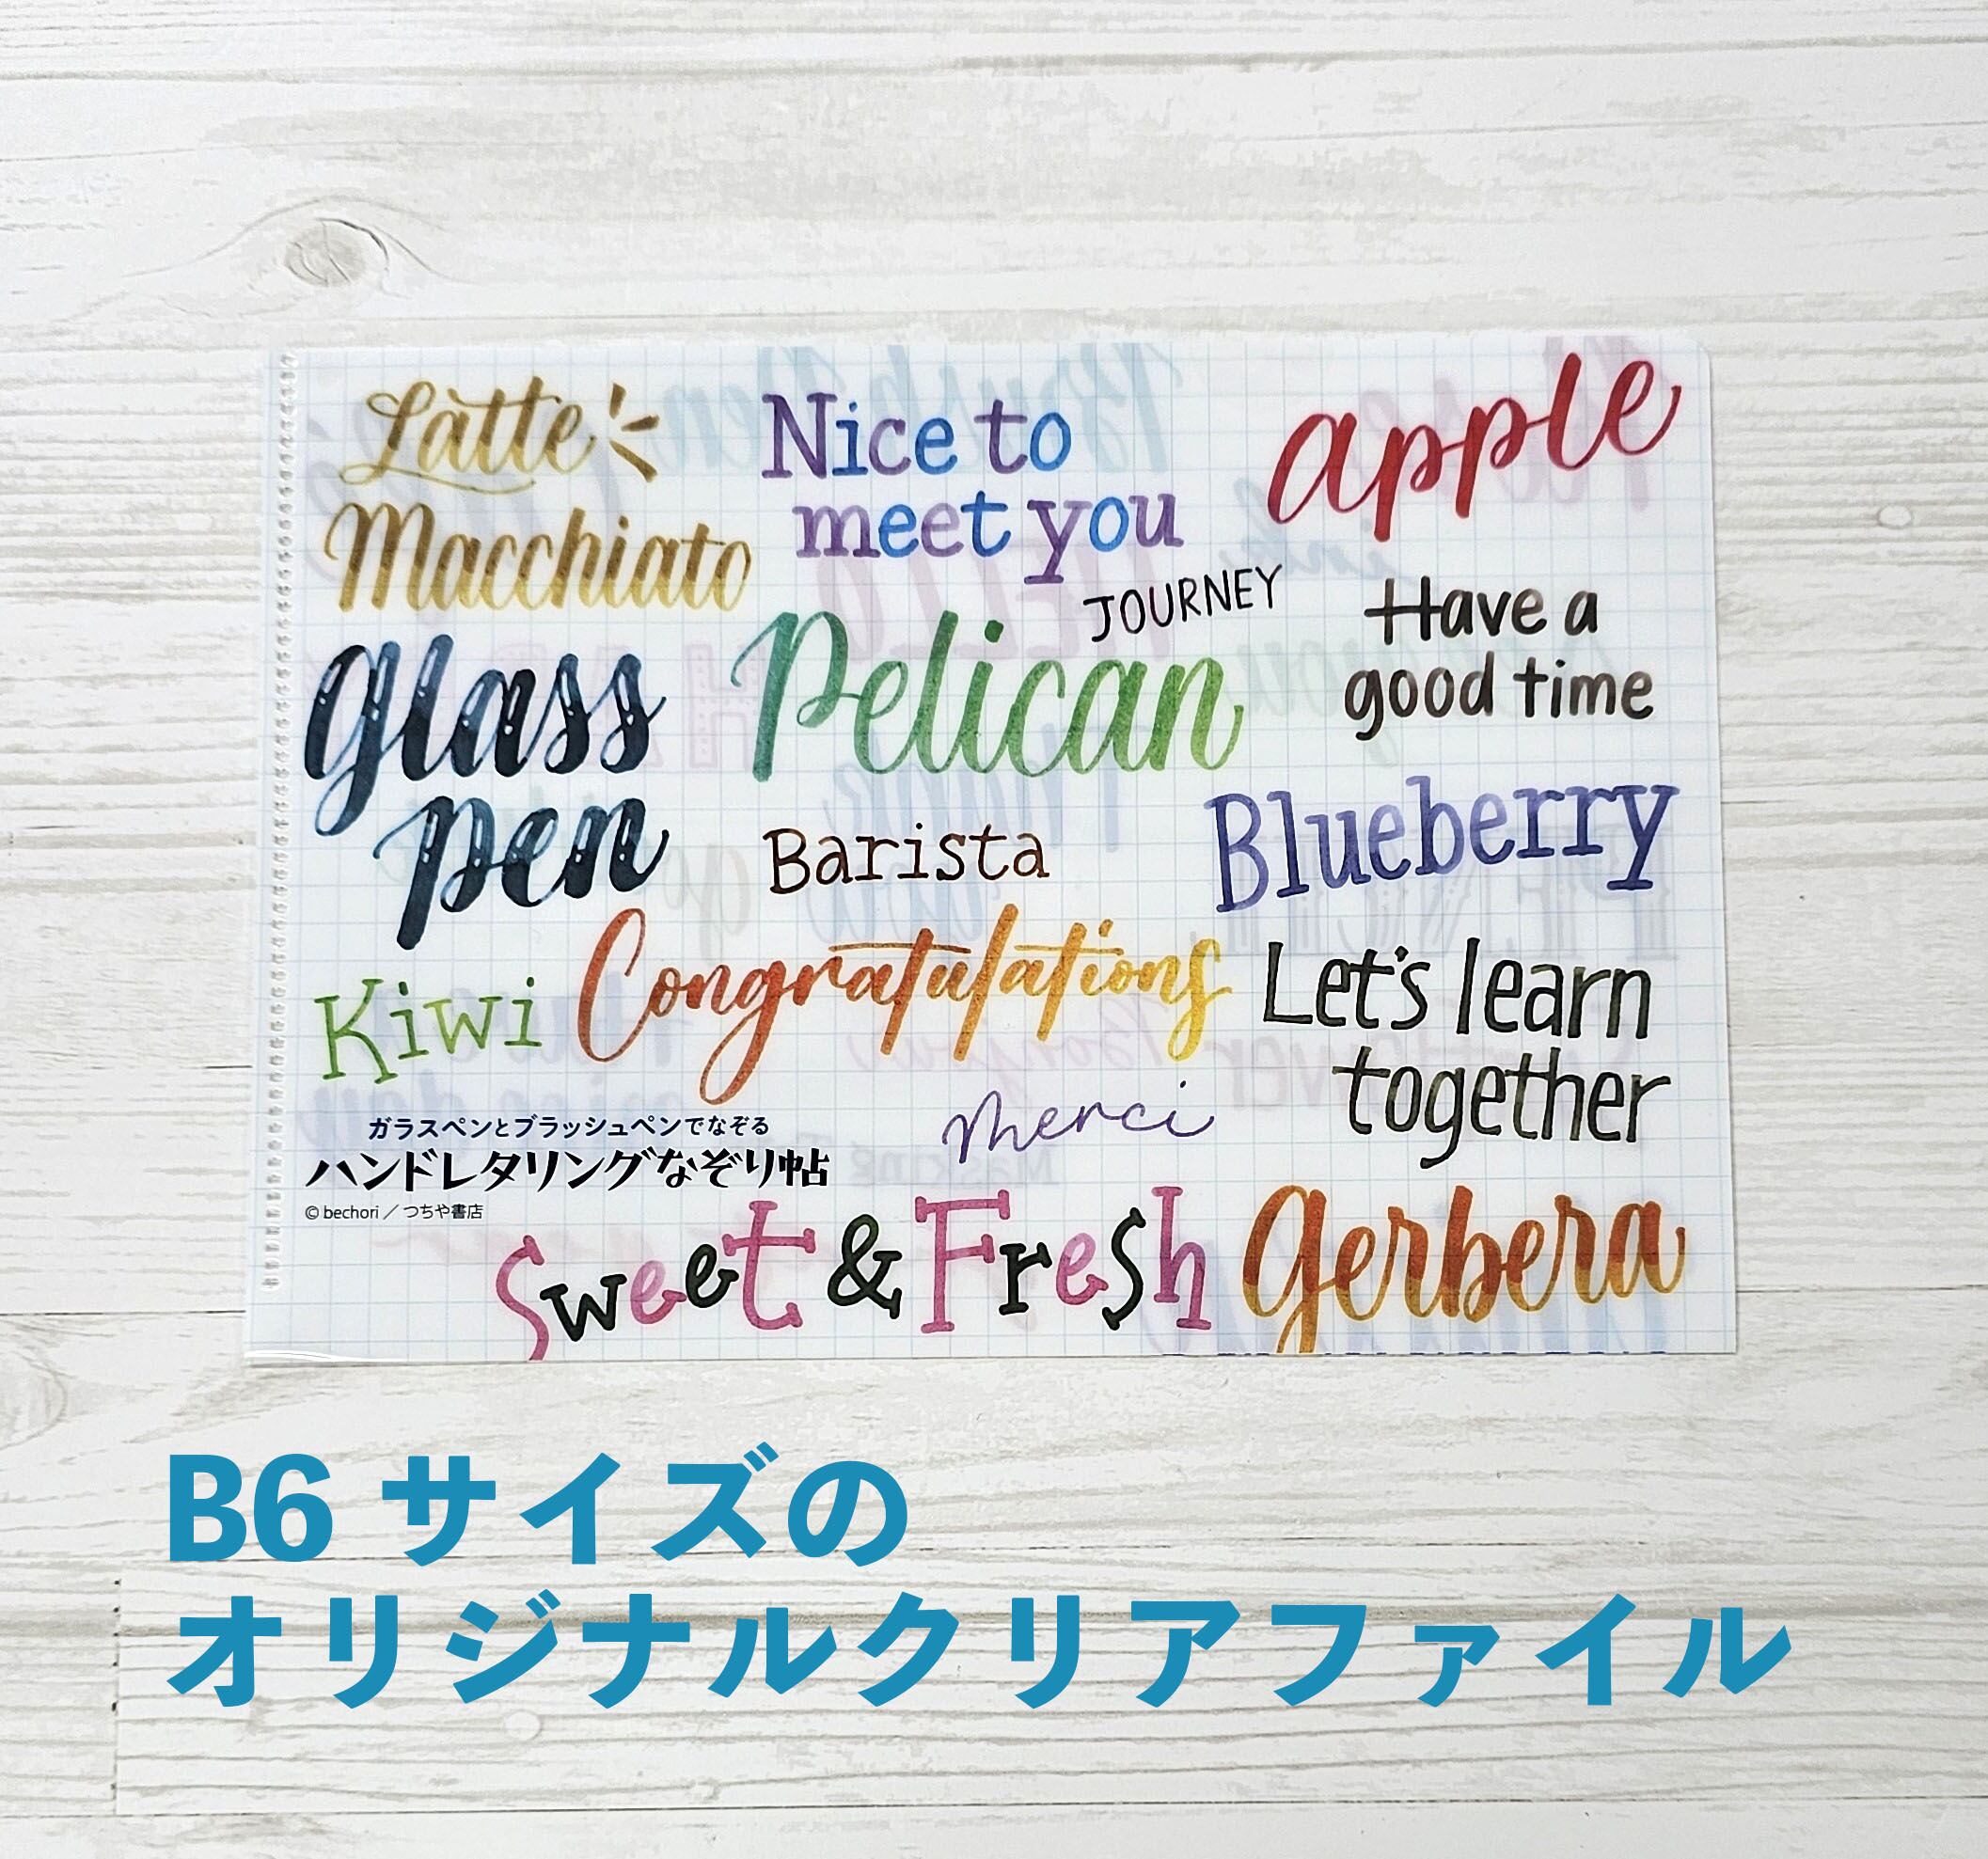 Latte
Macchiato
Nice to
meet you
apple
JOURNEY
Have a
good time
glass
pen
Pelican
Barista
Blueberry
Kiwi
Congratulations
Let's learn
together
merci
ガラスペンとブラッシュペンでなぞる
ハンドレタリングなぞり帖
© bechori／つちや書店
Sweet & Fresh
gerbera
B6 サイズの
オリジナルクリアファイル